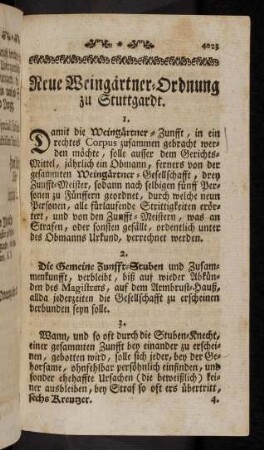 4023
Neue Weingärtner-Ordnung
zu Stuttgardt.
1.
Damit die Weingärtner-Zunfft, in ein
rechtes Corpus zusammen gebracht wer-
den möchte, solle ausser dem Gerichts-
Mittel, jährlich ein Obmann, ferners von der
gesammten Weingärtner-Gesellschafft, drey
Zunfft-Meister, sodann nach selbigen fünff Per-
sonen zu Zünfftern geordnet, durch welche neun
Personen, all fürlaufende Strittigkeiten erör-
tert, und von den Zunfft-Meistern, was an
Strafen, oder sonsten gefällt, ordentlich unter
des Obmanns Urkund, verrechnet werden.
2.
Die Gemeine Zunfft-Stuben und Zusam-
menkunfft, verbleibt, biß auf wieder Abkün-
den des Magistrats, auf dem Armbrust-Hauß,
allda jederzeiten die Gesellschafft zu erscheinen
verbunden seyn solle.
3.
Wann, und so oft durch die Stuben-Knecht,
einer gesammten Zunfft bey einander zu erschei-
nen, gebotten wird, solle sich jeder, bey der Ge-
horsame, ohnfehlbar persöhnlich einfinden, und
sonder ehehaffte Ursachen (die beweißlich) kei-
ner ausbleiben, bey Straf so oft ers übertritt,
sechs Kreutzer. 4.